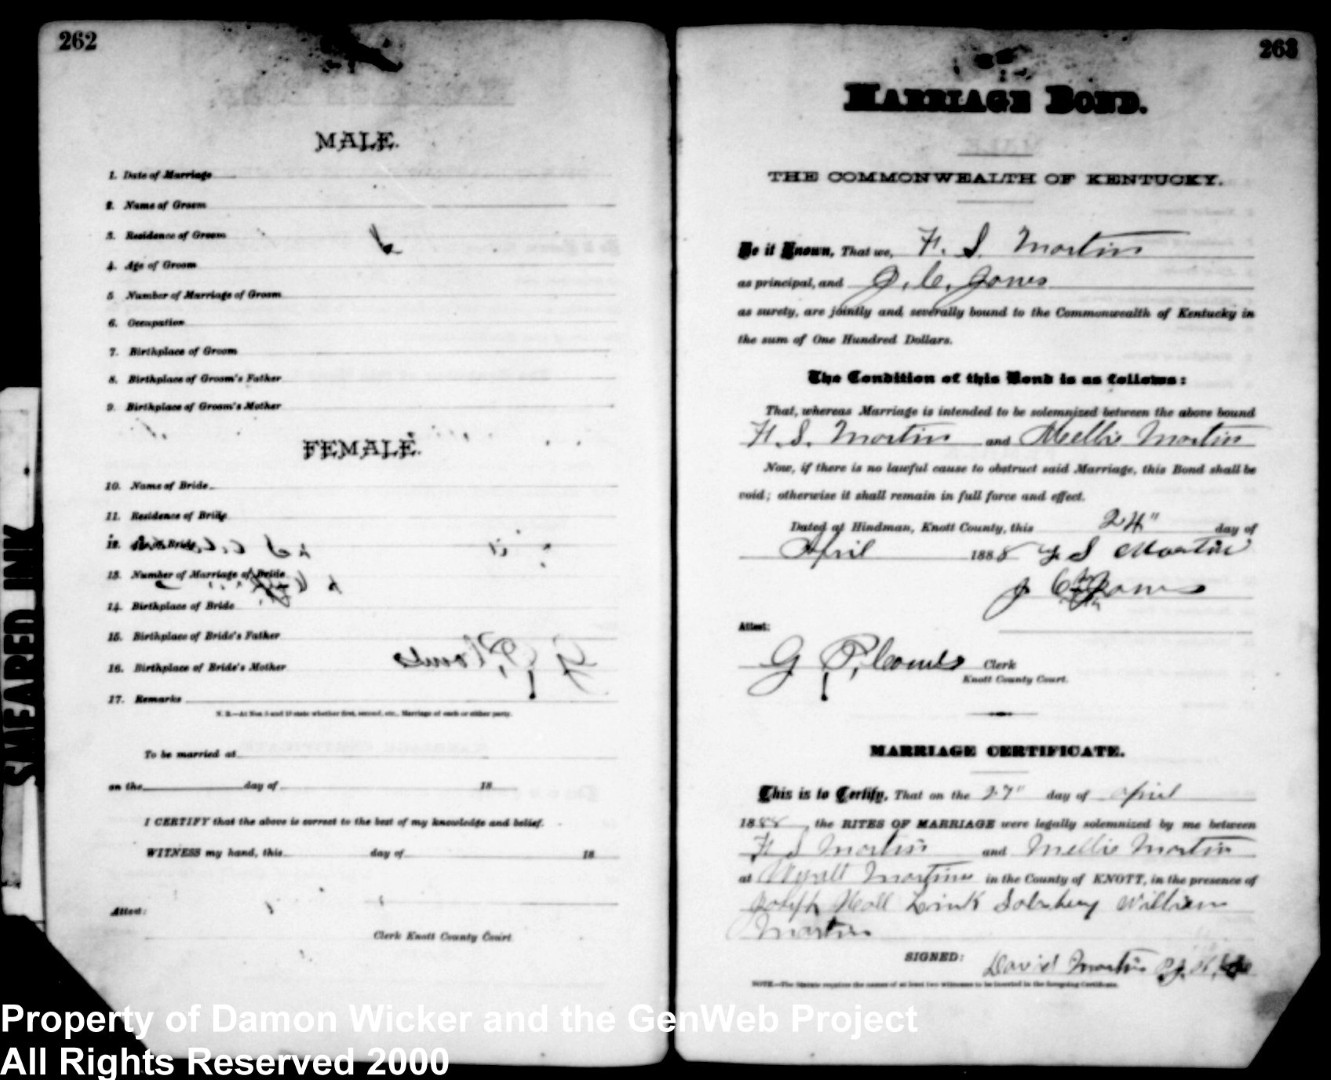 262
MALE.
1. Date of Marriage
2. Name of Groom
3. Residence of Groom
4. Age of Groom
5. Number of Marriage of Groom
6. Occupation
7. Birthplace of Groom
8. Birthplace of Groom's Father
9. Birthplace of Groom's Mother
FEMALE.
10. Name of Bride
11. Residence of Bride
12. Bride
13. Number of Marriage of Bride
14. Birthplace of Bride
15. Birthplace of Bride's Father
16. Birthplace of Bride's Mother
17. Remarks
N. B.—At Nos. 5 and 13 state whether first, second, etc., Marriage of each or either party.
To be married at
on the day of 18
I CERTIFY that the above is correct to the best of my knowledge and belief.
WITNESS my hand, this day of 18
Attest:
Clerk Knott County Court
SMEARED INK
263
MARRIAGE BOND.
THE COMMONWEALTH OF KENTUCKY.
Be it Known, That we, H. S. Martin
as principal, and J. C. Jones
as surety, are jointly and severally bound to the Commonwealth of Kentucky in
the sum of One Hundred Dollars.
The Condition of this Bond is as follows:
That, whereas Marriage is intended to be solemnized between the above bound
H. S. Martin and Mellie Martin
Now, if there is no lawful cause to obstruct said Marriage, this Bond shall be
void; otherwise it shall remain in full force and effect.
Dated at Hindman, Knott County, this 24" day of
April 1888 S Martin
J C Jones
Attest:
G P Combs Clerk
Knott County Court.
MARRIAGE CERTIFICATE.
This is to Certify, That on the 27" day of April
1888, the RITES OF MARRIAGE were legally solemnized by me between
H S Martin and Mellie Martin
at Wyatt Martins in the County of KNOTT, in the presence of
Joseph Hall William
Martin
SIGNED: David Martin
NOTE.—The Statute requires the names of at least two witnesses to be inserted in the foregoing Certificate.
Property of Damon Wicker and the GenWeb Project
All Rights Reserved 2000